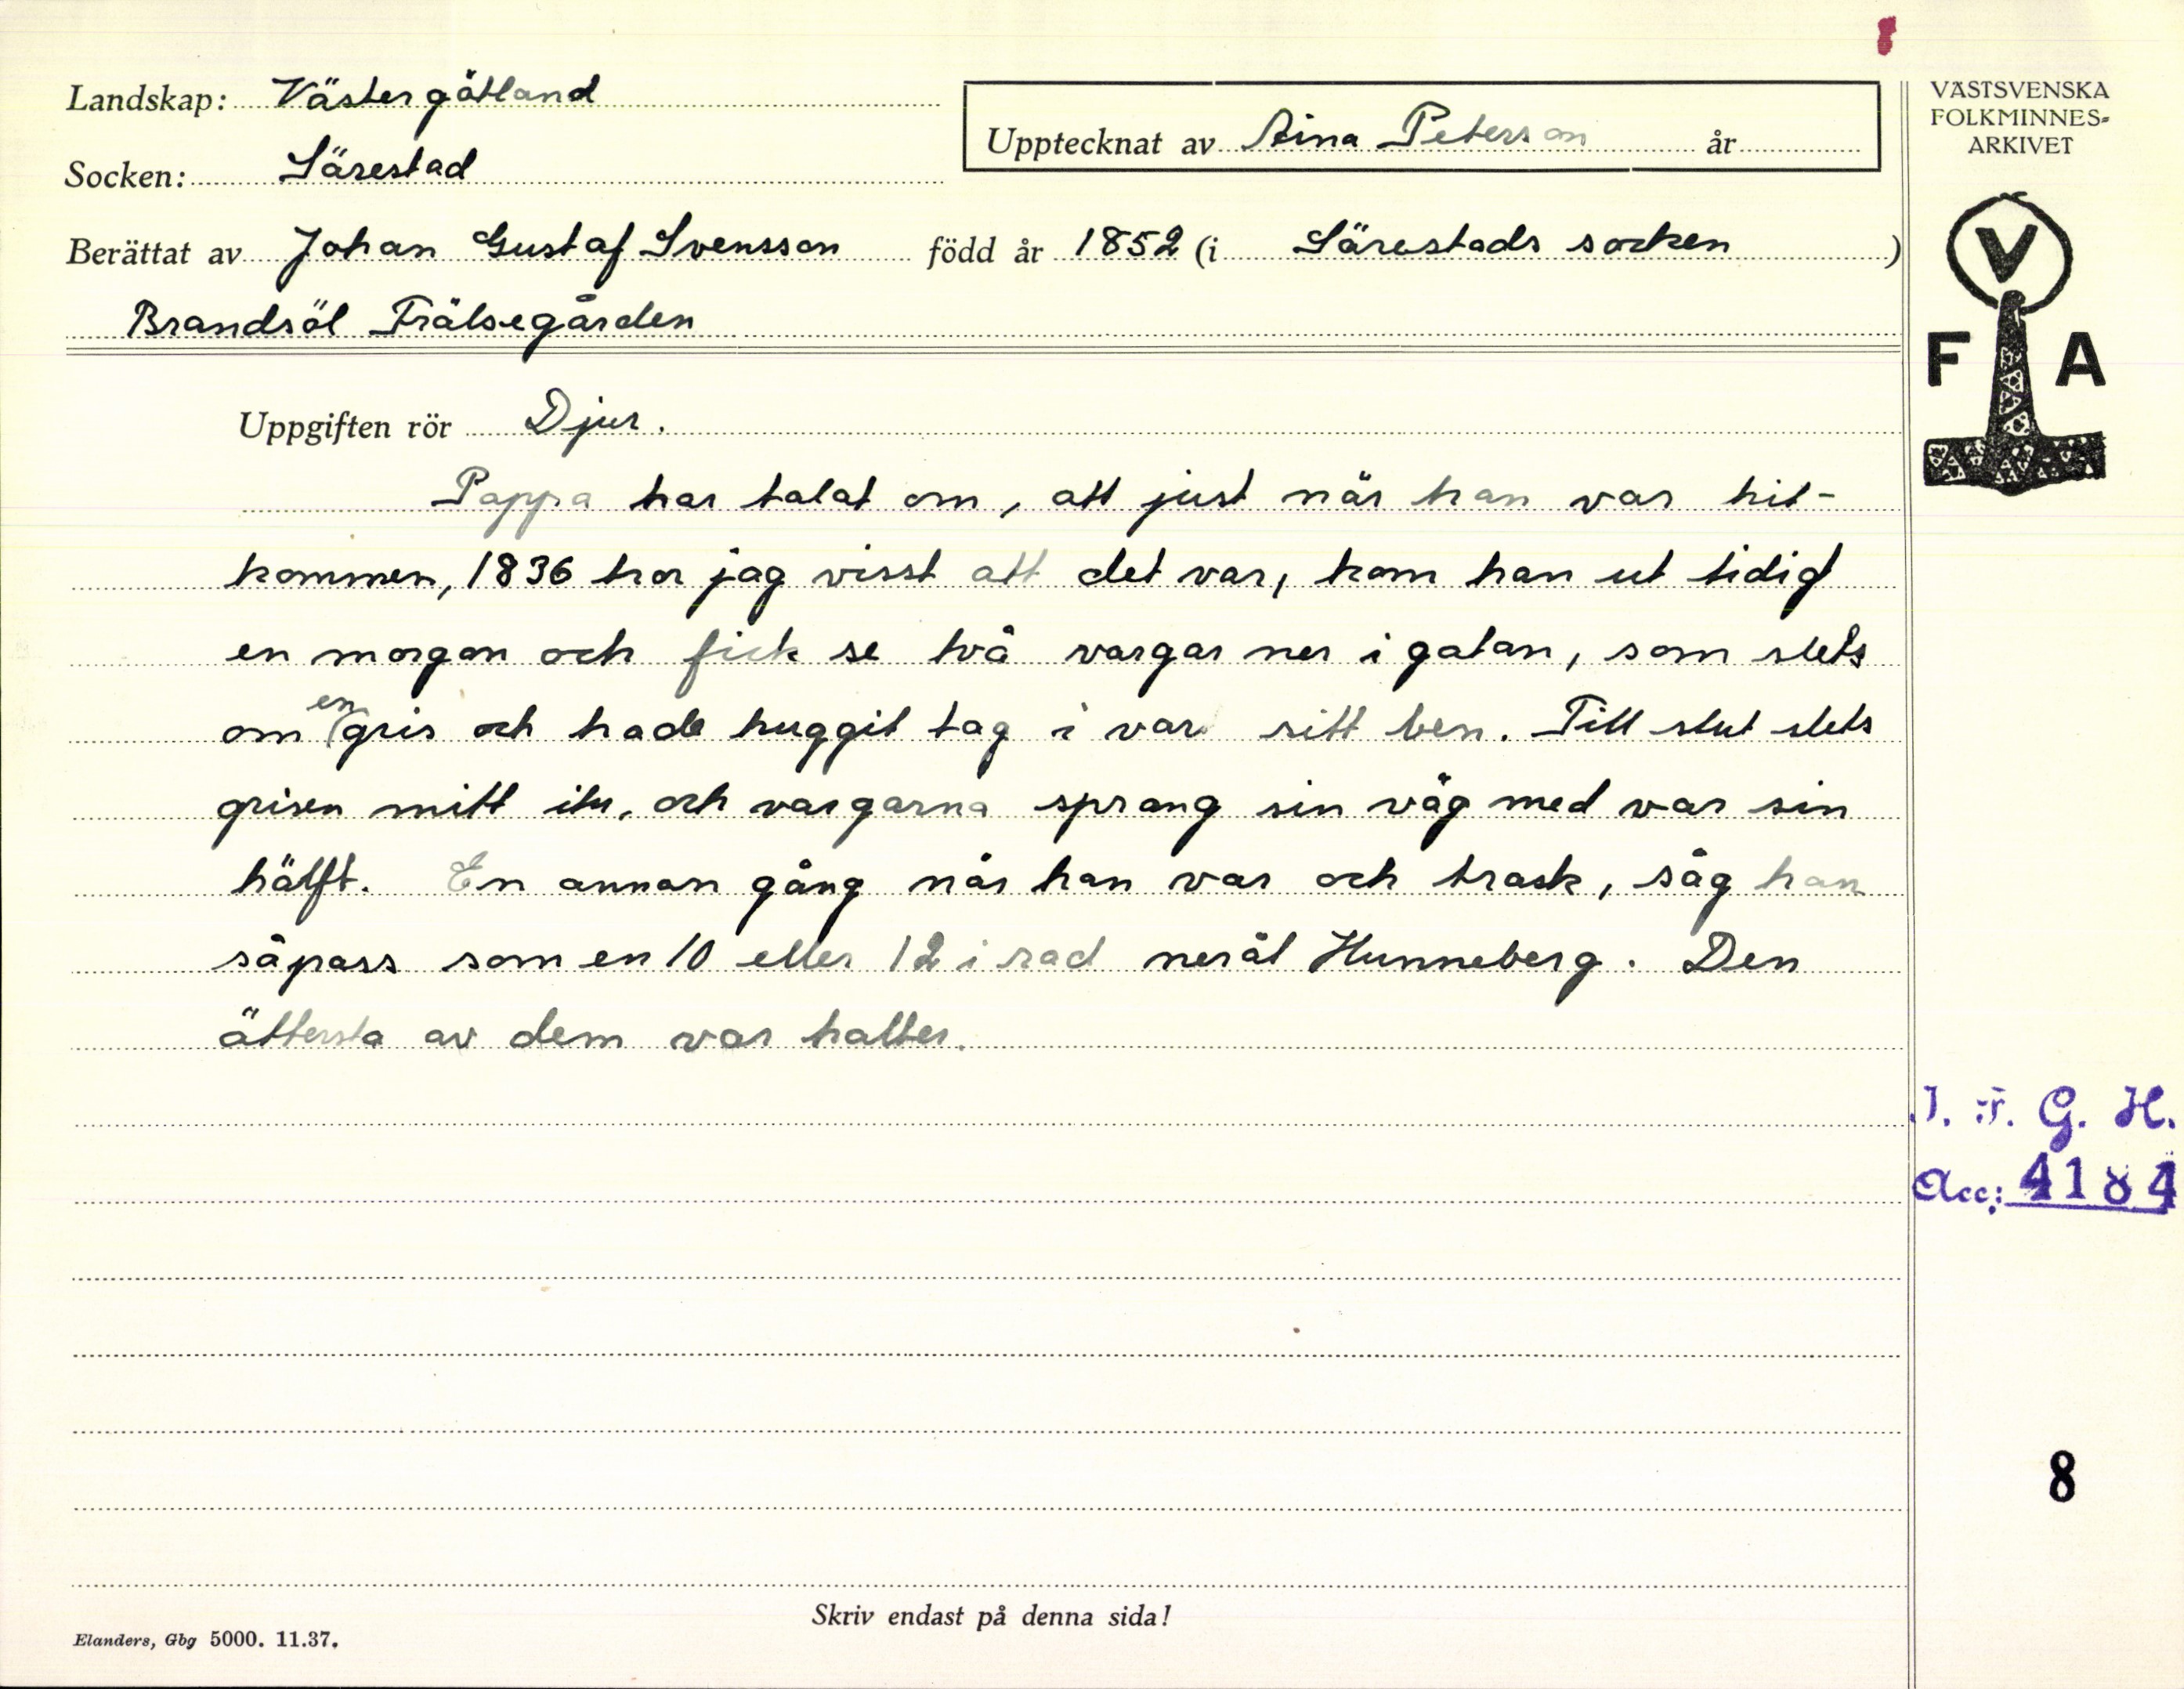 Landskap: Västergötland
Socken: Särestad
Upptecknat av Aina Peterson år
Berättat av Johan Gustaf Svensson född år 1852 (i Särestads socken)
Brandsöl Frälsegården
Uppgiften rör Djur.
Pappa har talat om, att just när han var hit-
kommen, 1836 tror jag visst att det var, kom han ut tidigt
en morgon och fick se två vargar ner i gatan, som slets
om en gris och hade huggit tag i var sitt ben. Till slut slets
grisen mitt itu, och vargarna sprang sin väg med var sin
hälft. En annan gång när han var och trask, såg han
såpass som en 10 eller 12 i rad neråt Hunneberg. Den
ättersta av dem var halter.
Skriv endast på denna sida!
Elanders, Gbg 5000. 11.37.
VÄSTSVENSKA
FOLKMINNES-
ARKIVET
V
F A
I. F. G. H.
Acc: 4184
8